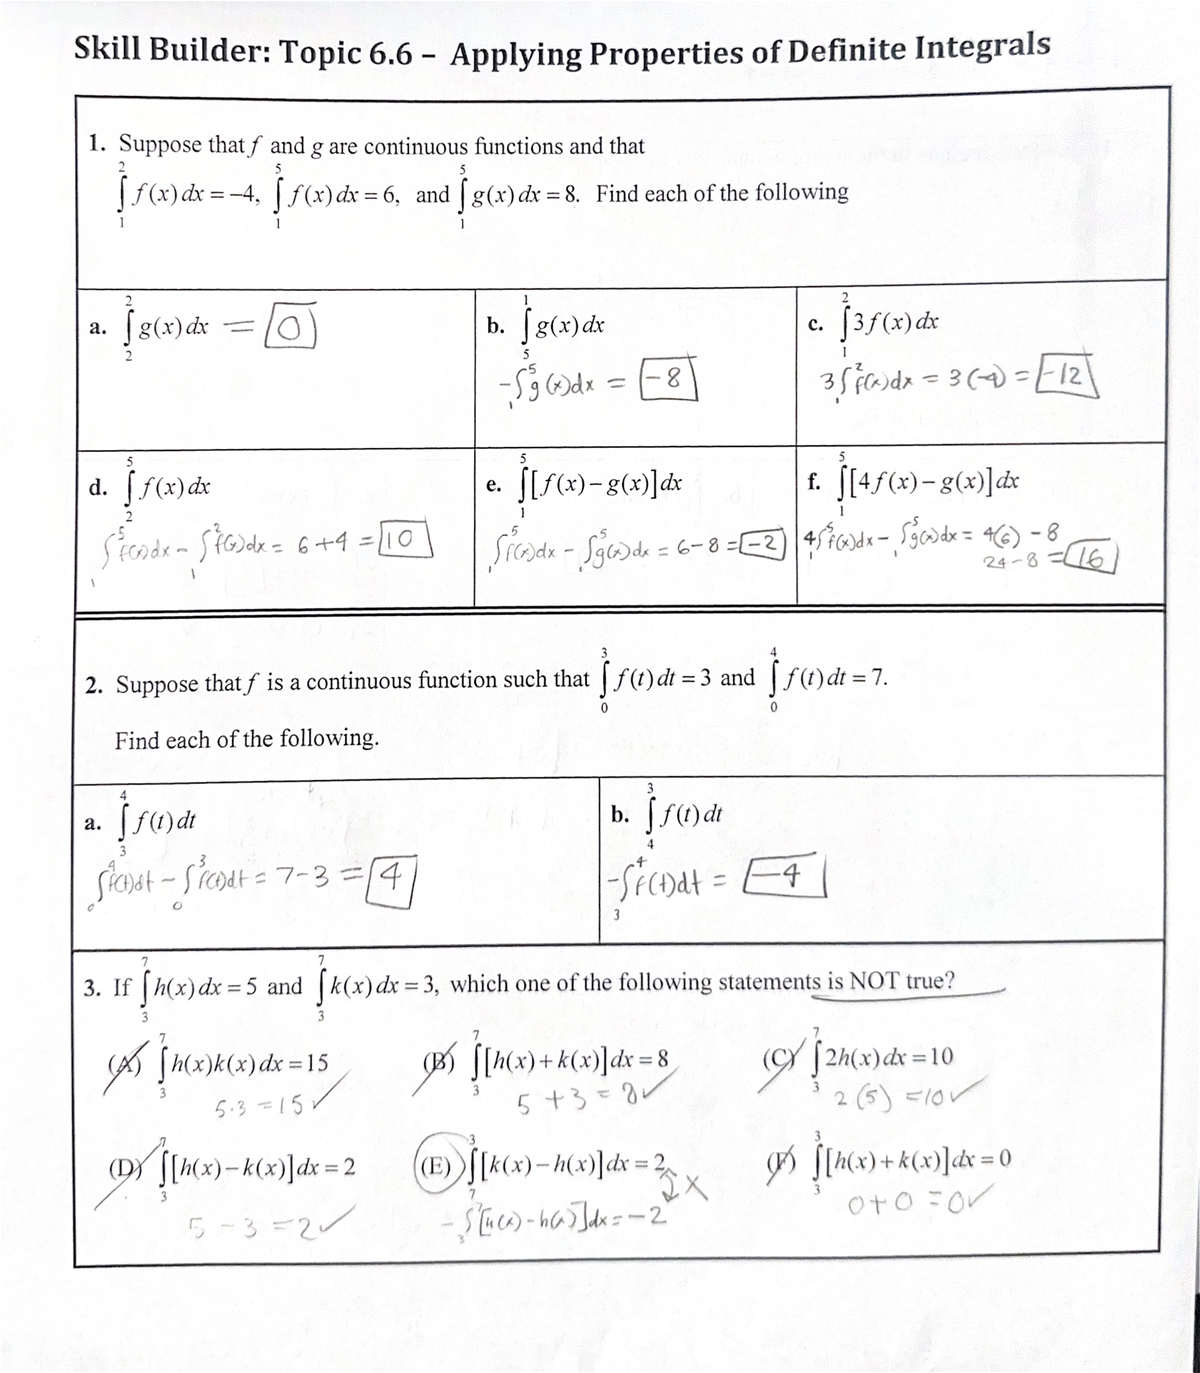 Skill Builder: Topic 6.6 – Applying Properties of Definite Integrals
1. Suppose that f and g are continuous functions and that
∫₁² f(x) dx = –4, ∫₁⁵ f(x) dx = 6, and ∫₁⁵ g(x) dx = 8. Find each of the following
a. ∫₂² g(x) dx = 0
b. ∫₅¹ g(x) dx
-∫₁⁵ g(x)dx = -8
c. ∫₁² 3f(x) dx
3∫₁² f(x)dx = 3(-4) = -12
d. ∫₂⁵ f(x) dx
∫₁⁵ f(x)dx - ∫₁² f(x)dx = 6+4 = 10
e. ∫₁⁵ [f(x) – g(x)] dx
∫₁⁵ f(x)dx - ∫₁⁵ g(x)dx = 6-8 = -2
f. ∫₁⁵ [4f(x) – g(x)] dx
4∫₁⁵ f(x)dx - ∫₁⁵ g(x)dx = 4(6) - 8
24-8 = 16
2. Suppose that f is a continuous function such that ∫₀³ f(t) dt = 3 and ∫₀⁴ f(t) dt = 7.
Find each of the following.
a. ∫₃⁴ f(t) dt
∫₀⁴ f(t)dt - ∫₀³ f(t)dt = 7-3 = 4
b. ∫₄³ f(t) dt
-∫₃⁴ f(t)dt = -4
3. If ∫₃⁷ h(x) dx = 5 and ∫₃⁷ k(x) dx = 3, which one of the following statements is NOT true?
(A) ∫₃⁷ h(x)k(x) dx = 15
5·3 = 15 ✓
(B) ∫₃⁷ [h(x) + k(x)] dx = 8
5 + 3 = 8 ✓
(C) ∫₃⁷ 2h(x) dx = 10
2(5) = 10 ✓
(D) ∫₃⁷ [h(x) – k(x)] dx = 2
5 - 3 = 2 ✓
(E) ∫₇³ [k(x) – h(x)] dx = 2
-∫₃⁷ - h(x)]dx = -2
(F) ∫₃³ [h(x) + k(x)] dx = 0
0+0 = 0 ✓